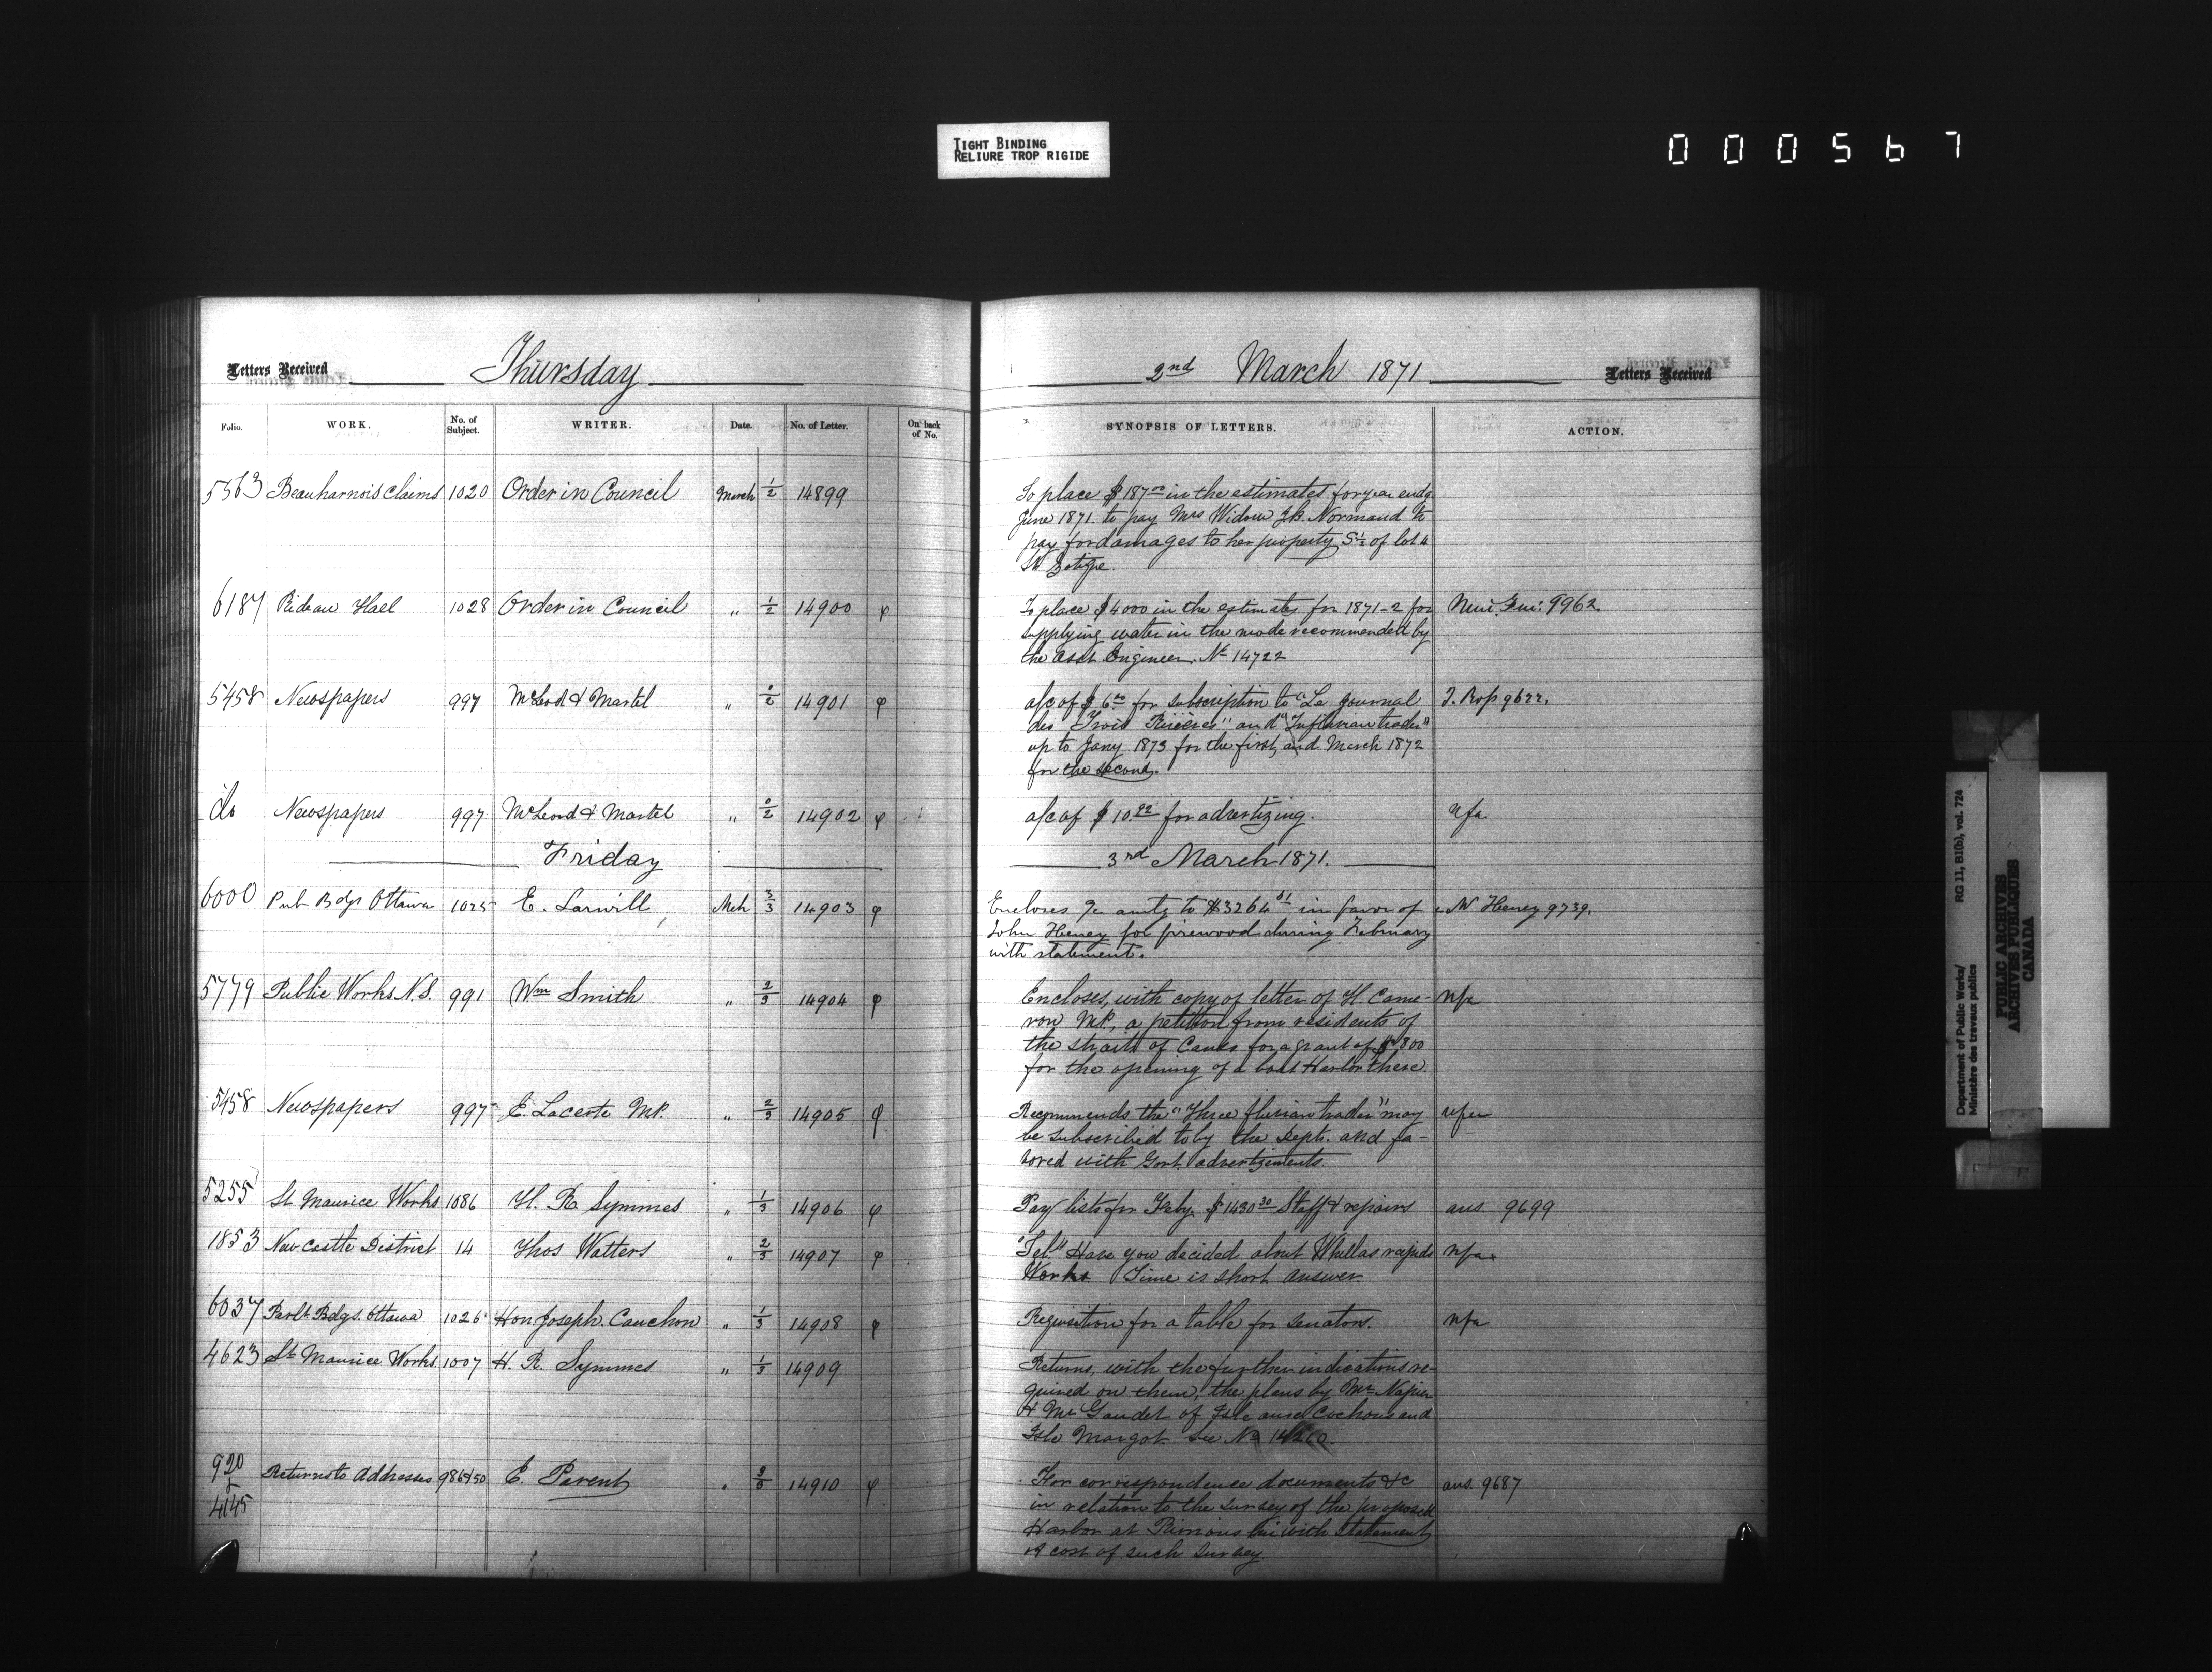 TIGHT BINDING
RELIURE TROP RIGIDE
000567
Letters Received Thursday 2nd March 1871 Letters Received
Folio. WORK. No. of Subject. WRITER. Date. No. of Letter. On back of No. SYNOPSIS OF LETTERS. ACTION.
5563 Beauharnois Claims 1020 Order in Council March 1/2 14899 To place $187.00 in the estimates for year endg
June 1871. to pay Mrs Widow J.B. Normand
pay for damages to her property S 1/2 of lot 4
St Zotique.
6187 Rideau Hall 1028 Order in Council " 1/2 14900 φ To place $4000 in the estimates for 1871-2 for 9962.
supplying water in the mode recommended by
the Asst Engineer. No 14722
5458 Newspapers 997 McLeod & Martel " 14901 φ a/c of $6.00 for subscription to "Le Journal 9622.
des Trois Rivières" and
up to Jany 1873 for the first, and March 1872
for the second.
do Newspapers 997 McLeod & Martel " 14902 φ a/c of $10.92 for advertizing. nfa
Friday 3rd March 1871.
6000 Pub Bdgs Ottawa 1025 E. Larwill Mch 3/3 14903 φ Encloses a/c amtg to $3264.51 in favor of Heney 9739.
John Heney for firewood during February
with statement.
5779 Public Works N.S. 991 Wm Smith " 2/3 14904 φ Encloses, with copy of letter of H. Came- nfa
ron MP, a petition from residents of
the straits of Canso for a grant of $800
for the opening of a boat Harbor there
5458 Newspapers 997 E. Lacerte MP. " 2/3 14905 φ Recommends the "Three fluvian trader" may nfa
be subscribed to by the Dept. and fa-
vored with Govt. advertizements
5255 St Maurice Works 1086 H. R. Symmes " 1/3 14906 φ Pay lists for Feby. $1430.30 Staff & repairs ans. 9699
1853 New Castle District 14 Thos Watters " 2/3 14907 φ "Tel" Have you decided about Whitlas rapids nfa
Works Time is short answer
6037 Parlt Bdgs. Ottawa 1026 Hon Joseph Cauchon " 1/3 14908 φ Requisition for a table for Senators. nfa
4623 St Maurice Works 1007 H. R. Symmes " 1/3 14909 Returns, with the further indications re-
quired on them, the plans by Mr Napier
& Mr Gaudet of Isle aux Cochons and
Isle Margot. See No
920 & 4145 Returns to Addresses 986 & 50 E. Parent " 3/3 14910 φ For correspondence documents &c ans. 9687
in relation to the survey of the proposed
Harbor at Rimouski with statement
of cost of such survey
Department of Public Works/ RG 11, B1(b), vol. 724
Ministère des travaux publics
PUBLIC ARCHIVES
ARCHIVES PUBLIQUES
CANADA